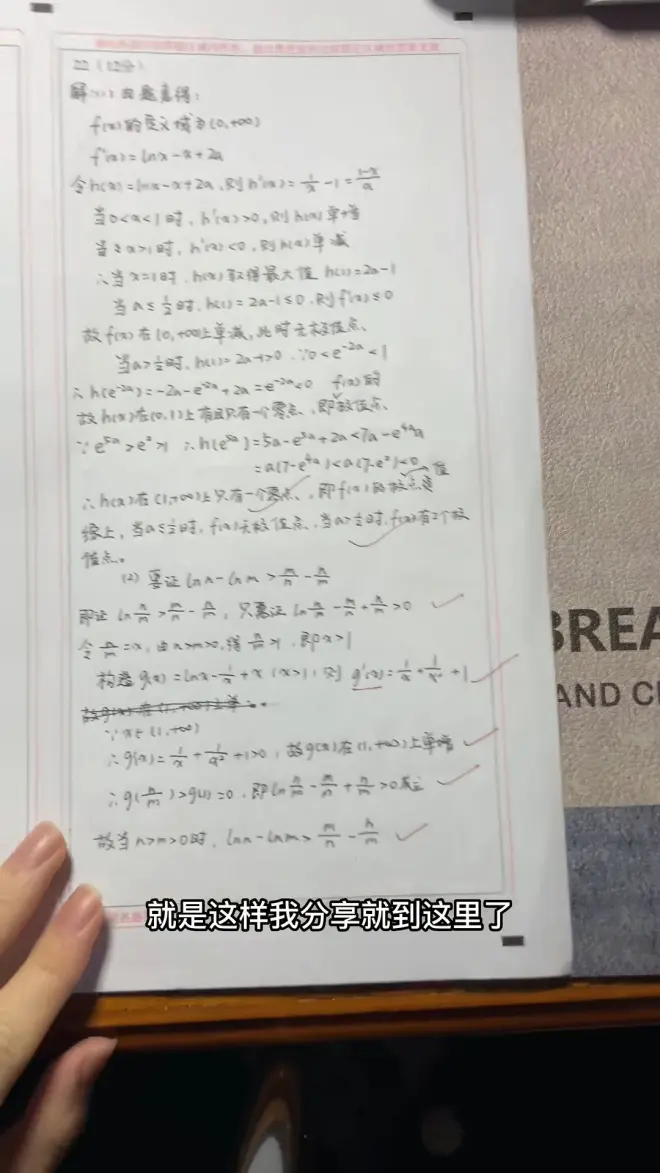 22（12分）
解：(1)由题意得：
f(x)的定义域为(0,+∞)
f'(x)=lnx-x+2a
令h(x)=lnx-x+2a,则h'(x)=1/x-1=(1-x)/x
当0<x<1时,h'(x)>0,则h(x)单增
当x>1时,h'(x)<0,则h(x)单减
∴当x=1时,h(x)取得最大值h(1)=2a-1
当a≤1/2时,h(1)=2a-1≤0,则f'(x)≤0
故f(x)在(0,+∞)上单减,此时无极值点、
当a>1/2时,h(1)=2a-1>0.∵0<e^{-2a}<1
∴h(e^{-2a})=-2a-e^{-2a}+2a=e^{-2a}<0 f(x)的
故h(x)在(0,1)上有且只有一个零点、即极值点、
∵e^{5a}>e^{2}>1 ∴h(e^{5a})=5a-e^{5a}+2a<7a-e^{4a}a
=a(7-e^{4a})<a(7-e^{2})<0
∴h(x)在(1,+∞)上只有一个零点、即f(x)的极点 值
综上,当a≤1/2时,f(x)无极值点,当a>1/2时,f(x)有2个极
值点。
(2)要证lnn-lnm>m/n-n/m
即证ln n/m>m/n-n/m,只需证ln n/m-m/n+n/m>0
令n/m=x,由n>m>0,得n/m>1,即x>1
构造g(x)=lnx-1/x+x(x>1),则g'(x)=1/x+1/x²+1
故g(x)在(1,+∞)上单
∵x∈(1,+∞)
∴g'(x)=1/x+1/x²+1>0,故g(x)在(1,+∞)上单增
∴g(n/m)>g(1)=0,即ln n/m-m/n+n/m>0成立
故当n>m>0时,lnn-lnm>m/n-n/m
BREA
AND C
就是这样我分享就到这里了